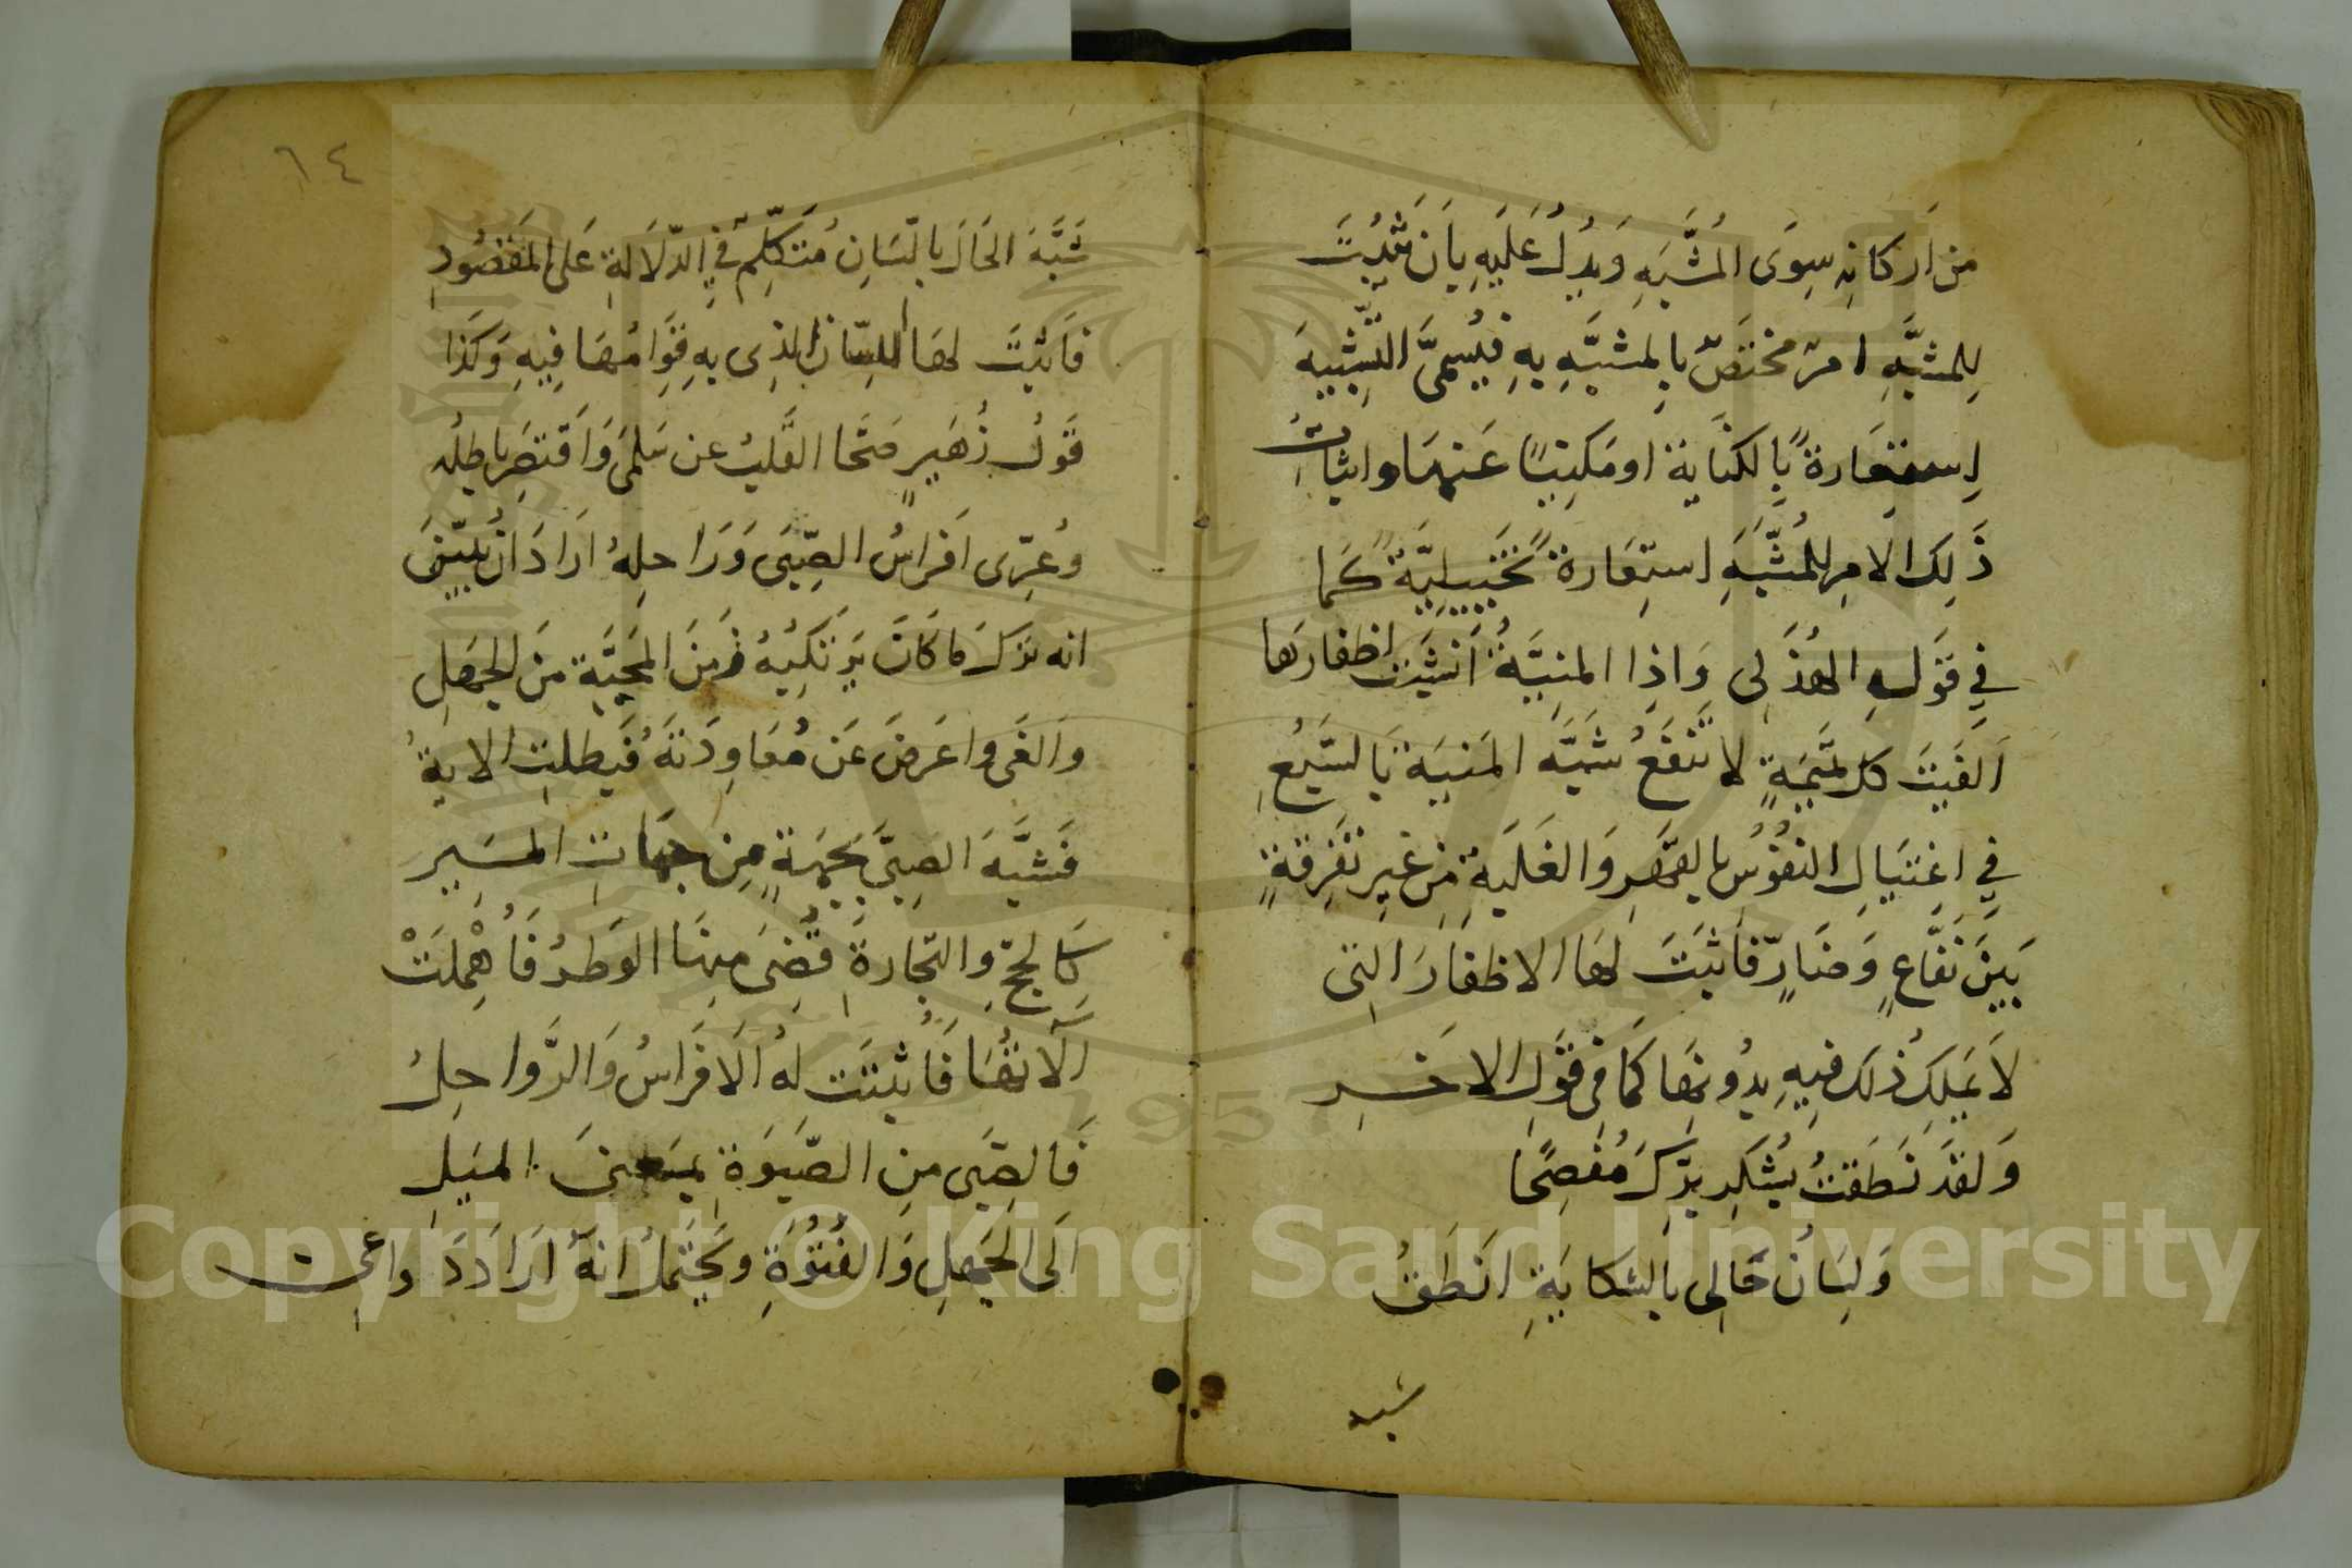 من اَركانِه سِوَى المُشَّبَهِ وَيدُلُ عَلَيهِ بِاَن يثبُتَ
لِلمشبَّهِ امرٌ مختَصٌّ بِالمشبَّهِ بِهِ فيُسمىَّ التَّشبِيهَ
اِستِعَارةً بِالكنَاية اومَكنِيًا عَنهَا واثبَاتُ
ذَلِكَ الامرِ للمُشَّبَهَ استِعَارةً تخَيِيلِيَّةً كمَا
فيِ قوَلهِ الهُذَلِى وَاِذا المنِيَّةُ اَنشَبَت اظفارَها
اَلفَيتَ كل تَمَيمَةٍ لا تَنفَعُ شبَّهَ المَنيَة بِالسَّبعُِ
في اغِتيَالِ النفوُسِ بالقهَرِ وَالغَلَبةِ مِن غيرِ تفَرِقةٍ
بَينَ نَفَّاعٍ وَضَارٍّ فاثبَتَ لهَا الاظفارَ التِى
لاَ يمَلِكُ ذلكَ فيهِ بِدُونِهَا كمَا في قوَلِ الاخَرِ
وَلقدَ نَطَقتُ بِشُكرِ بِرِّكَ مُفصِحًا
وَلِسَانُ حَالِى بِالشكايَةِ انَطَقُ
شبه
٦٤
شَبَّهَ الحَالَ بالِلّسَانِ مُتَكلِّمٍ فِي الدّلاَلةِ عَلى المَقصُودِ
فاَثبَتَ لهَا اللِسَانَ الذِى بهِ قوَِامُهَا فِيهِ وَكَذا
قَولُ زُهَيرٍ صَحَا القَلبُ عن سَلمَى وَاَقصَرِ باطِلُه
وعُرِّى اَفراسُ الصِّبَى وَرَاحِلهُ ارَادَ ان يُبيِّنَ
انه ترَكَ مَا كَانَ يَرتَكِبُهُ زمَنَ المَحبَّة مِنَ الجهَلِ
وَالغَى واعَرضَ عَن مُعَاوِدَتَهُ فَبطلتِ الاتهُ
فَشبَّهَ الصِبىَّ بجهَةٍ مِن جهَاتِ المسَير
كَالحجِّ وِالتِّجارةِ قُضِىَ منِهَا الوَطرُ فَاُهْمِلَتْ
آلَاتهُا فَاُثبتَت لهُ الَافرَاسُ وَالرَّواحِلُ
فَالصِّبَى مِنِ الصّبَوَة بِمعنىَ الميَلِ
اِلَى الجَهلِ وَالفُتُوّةِ ويَحتَمِلُ انهُ ارَادَ دَواعِى